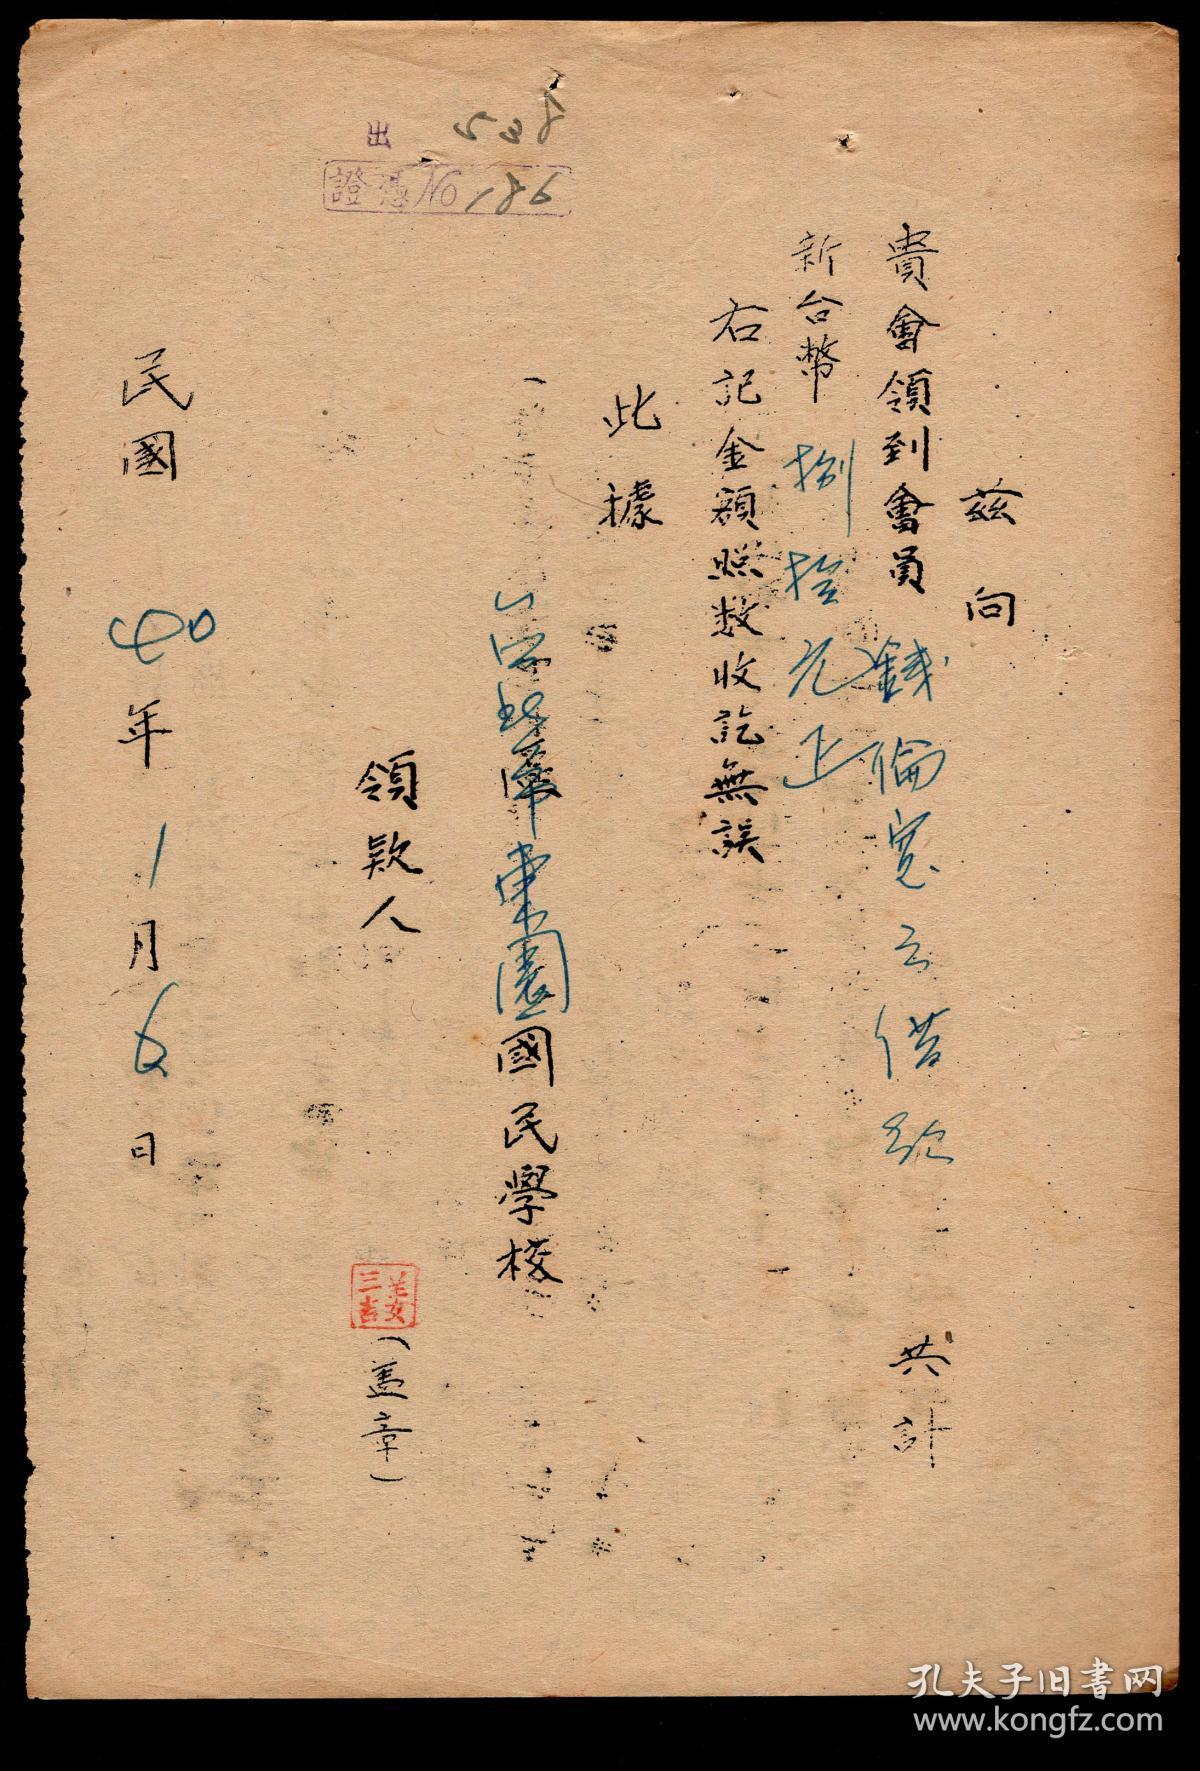 出 538
證憑No 186
茲向
貴會領到會員 錢倫寬 借款 共計
新台幣 捌拾元正
右記金額照数收訖無誤
此據
東園國民學校
領款人
姜三吉
(盖章)
民國 40年 1月 6日
孔夫子旧书网
www.kongfz.com